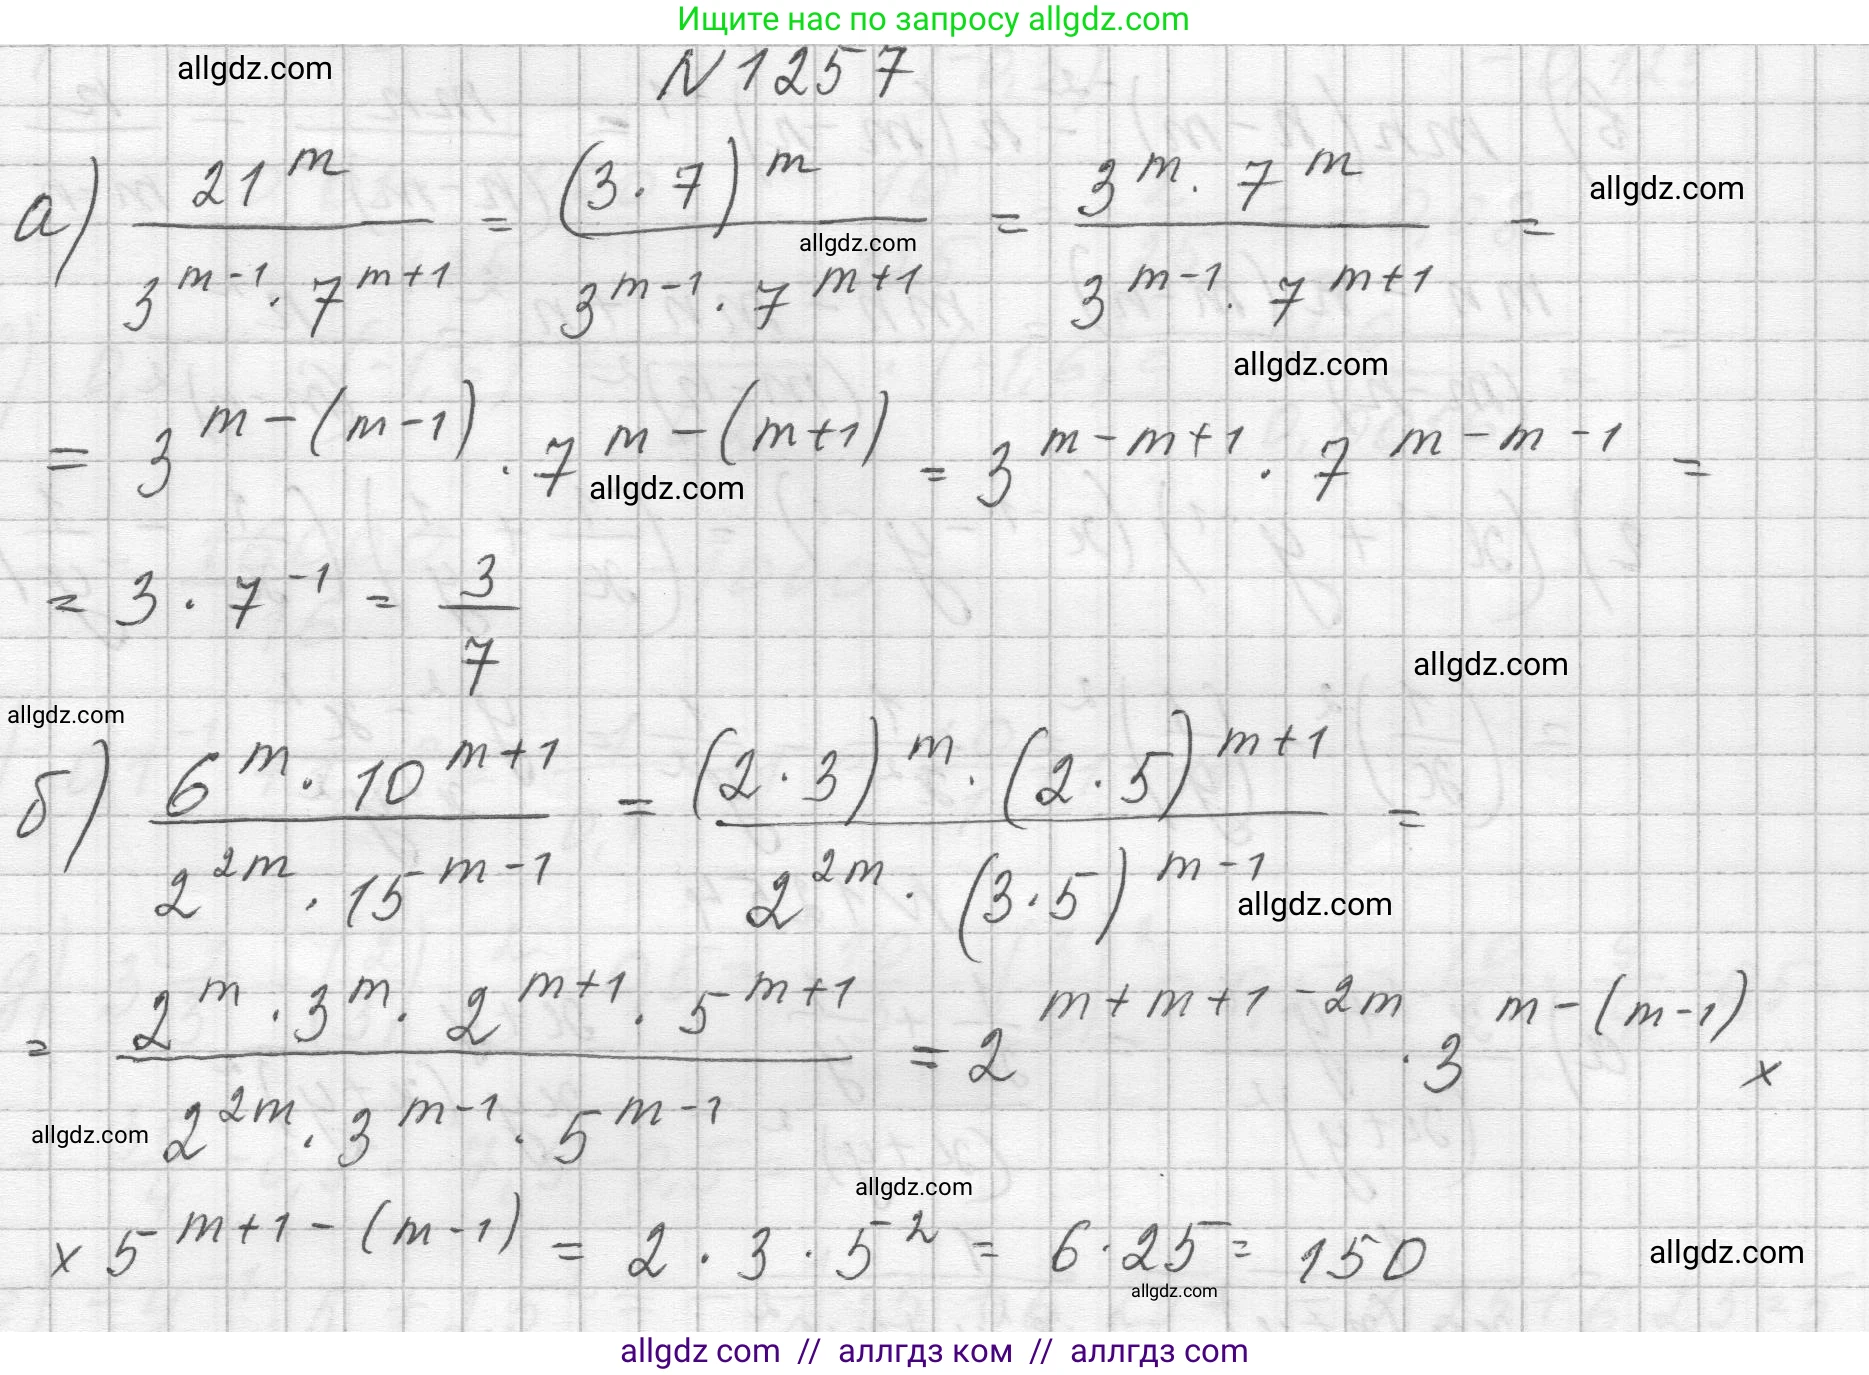 Ищите нас по запросу allgdz.com
allgdz.com
N 1257
а) 21^m / (3^(m-1) · 7^(m+1)) = (3 · 7)^m / (3^(m-1) · 7^(m+1)) = (3^m · 7^m) / (3^(m-1) · 7^(m+1)) =
allgdz.com
allgdz.com
allgdz.com
= 3^(m-(m-1)) · 7^(m-(m+1)) = 3^(m-m+1) · 7^(m-m-1) =
allgdz.com
= 3 · 7^(-1) = 3/7
allgdz.com
allgdz.com
б) (6^m · 10^(m+1)) / (2^(2m) · 15^(m-1)) = ((2 · 3)^m · (2 · 5)^(m+1)) / (2^(2m) · (3 · 5)^(m-1)) =
allgdz.com
= (2^m · 3^m · 2^(m+1) · 5^(m+1)) / (2^(2m) · 3^(m-1) · 5^(m-1)) = 2^(m+m+1-2m) · 3^(m-(m-1)) ×
allgdz.com
allgdz.com
× 5^(m+1-(m-1)) = 2 · 3 · 5^2 = 6 · 25 = 150
allgdz.com
allgdz.com
allgdz com // аллгдз ком // аллгдз com